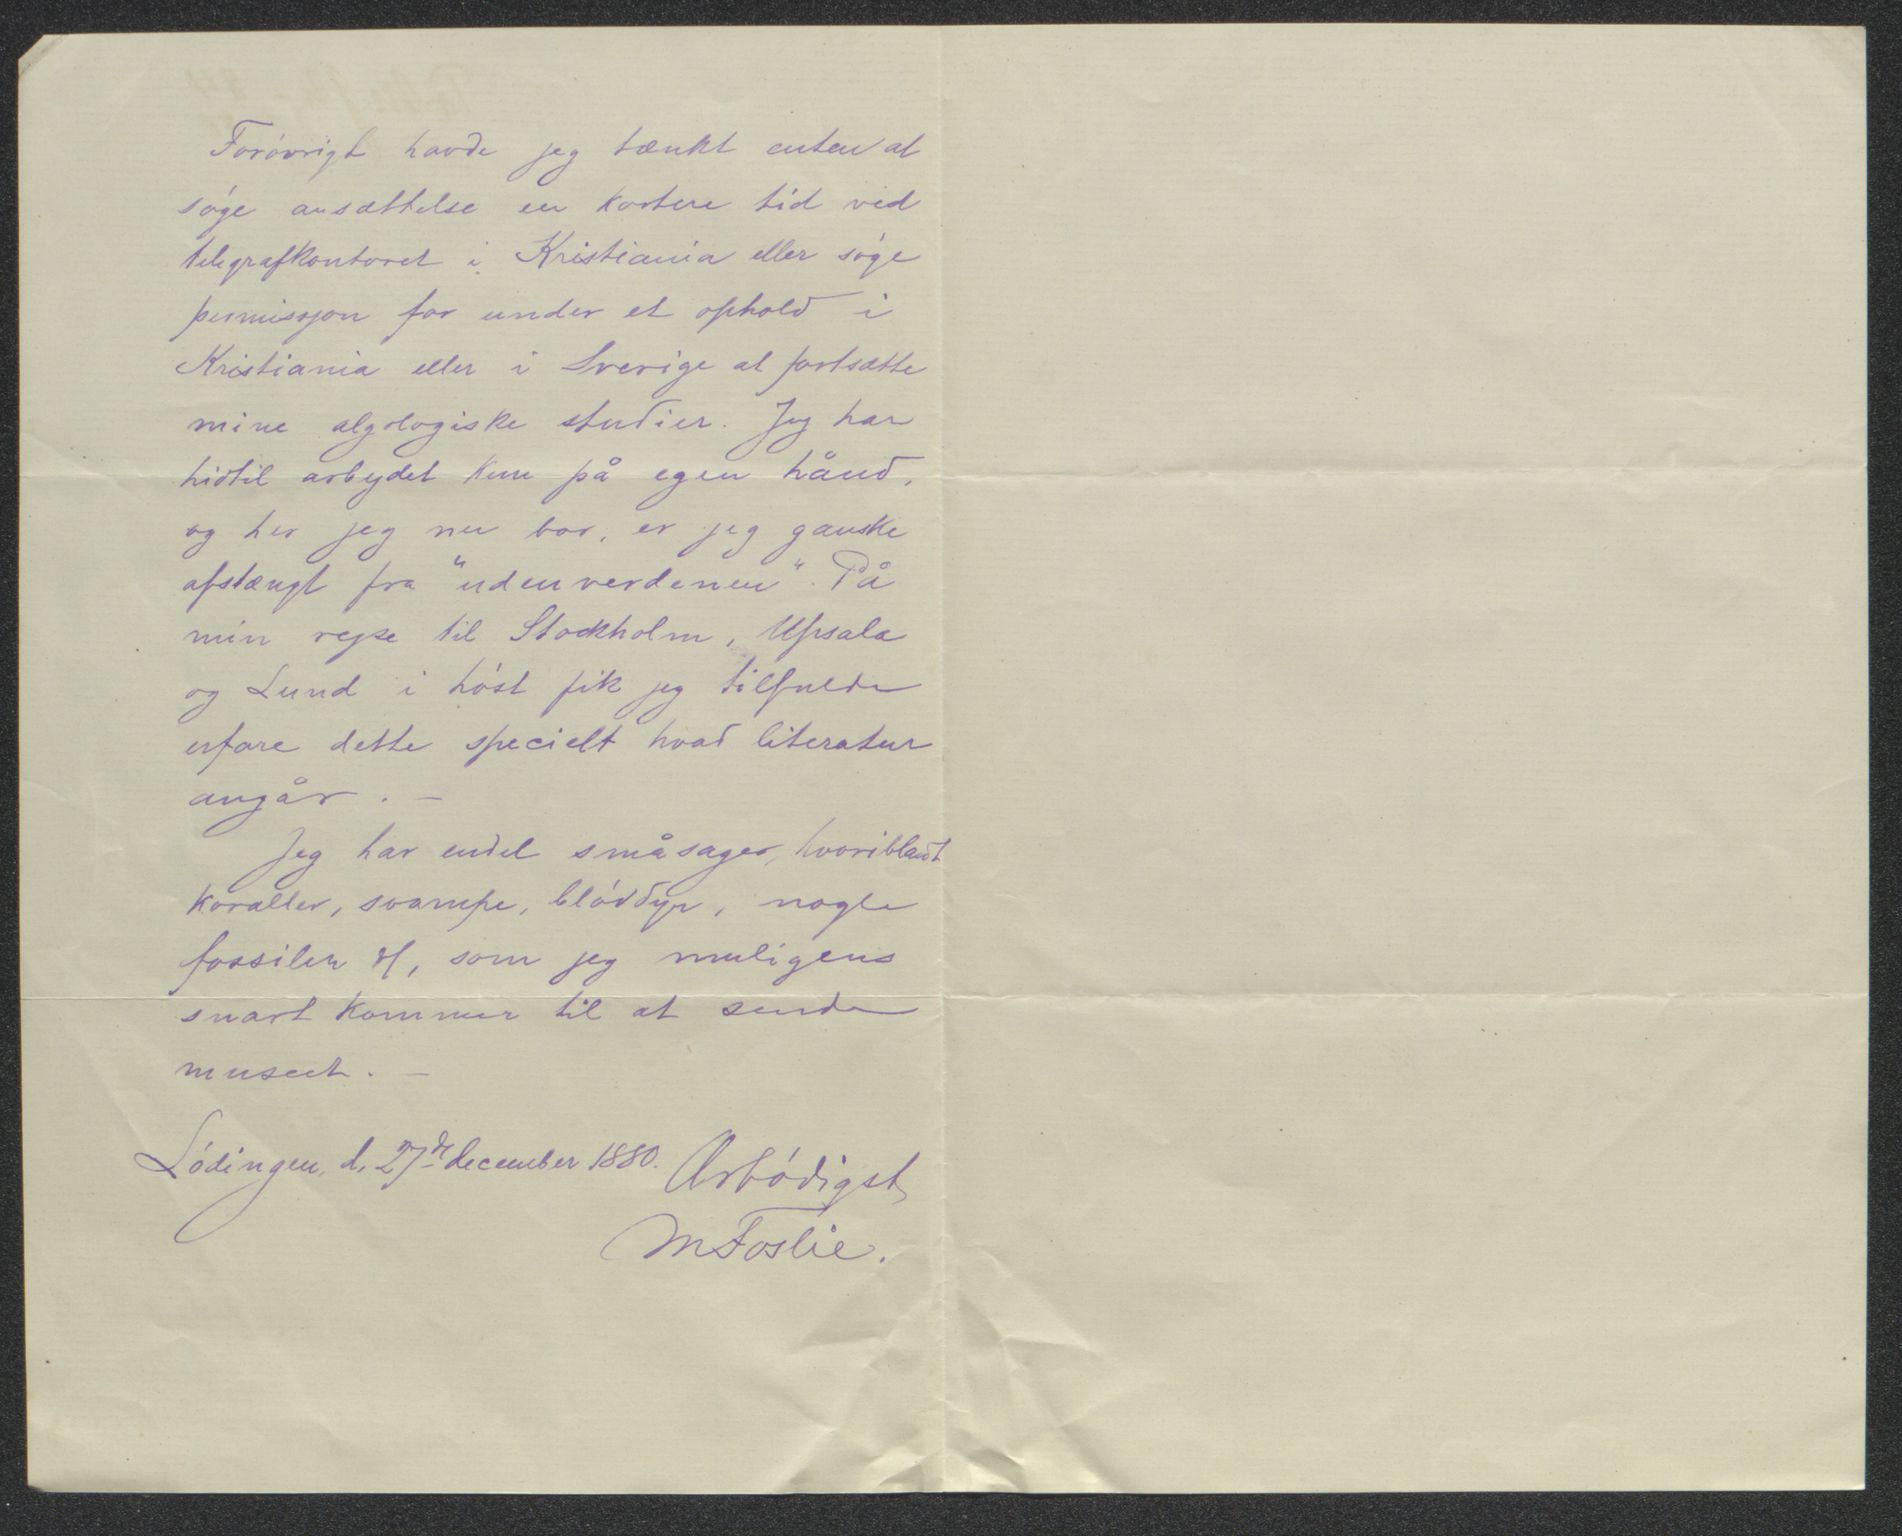 Forøvrigt havde jeg tænkt enten at
søge ansættelse en kortere tid ved
telegrafkontoret i Kristiania eller søge
permissjon for under et ophold i
Kristiania eller i Sverige at fortsætte
mine algologiske studier. Jeg har
hidtil arbejdet kun på egen hånd,
og her jeg nu bor, er jeg ganske
afstængt fra "udenverdenen". På
min rejse til Stockholm, Upsala
og Lund i høst fik jeg tilfulde
erfare dette specielt hvad literatur
angår. –
Jeg har endel småsager, hvoriblandt
koraller, svampe, bløddyr, nogle
fossiler &, som jeg muligens
snart kommer til at sende
museet. –
Lødingen, d. 27de december 1880. Ærbødigst
M Foslie.